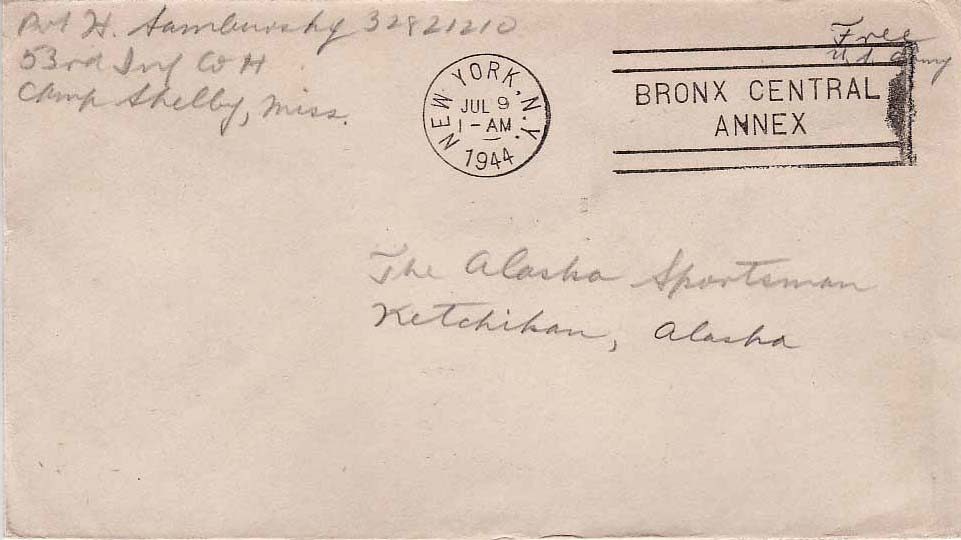 Pvt H. Sambursky 32821210
53rd Inf Co H
Camp Shelby, Miss.
Free
U.S. Army
NEW YORK, N.Y.
JUL 9
1-AM
1944
BRONX CENTRAL
ANNEX
The Alaska Sportsman
Ketchikan, Alaska